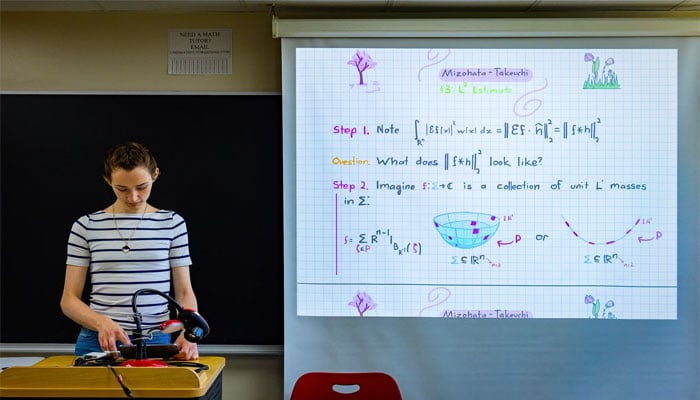 NEED A MATH
TUTOR?
EMAIL
Mizohata - Takeuchi
L² Estimate
Step 1. Note ∫_ℝⁿ |Ɛf(x)|² w(x) dx = ‖Ɛf · ĥ‖₂² = ‖f*h‖₂²
Question. What does ‖f*h‖₂² look like?
Step 2. Imagine f: Σ → ℂ is a collection of unit L¹ masses
in Σ.
f = Σ_{ξ∈P} Rⁿ⁻¹ 1_{B_{R⁻¹}(ξ)}
P or P
Σ ⊆ ℝⁿ n=3 Σ ⊆ ℝⁿ n=2
Mizohata - Takeuchi